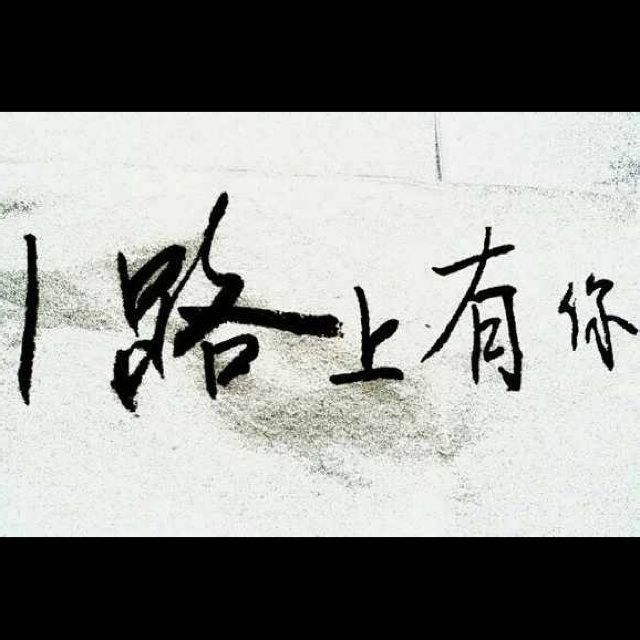 1路上有你